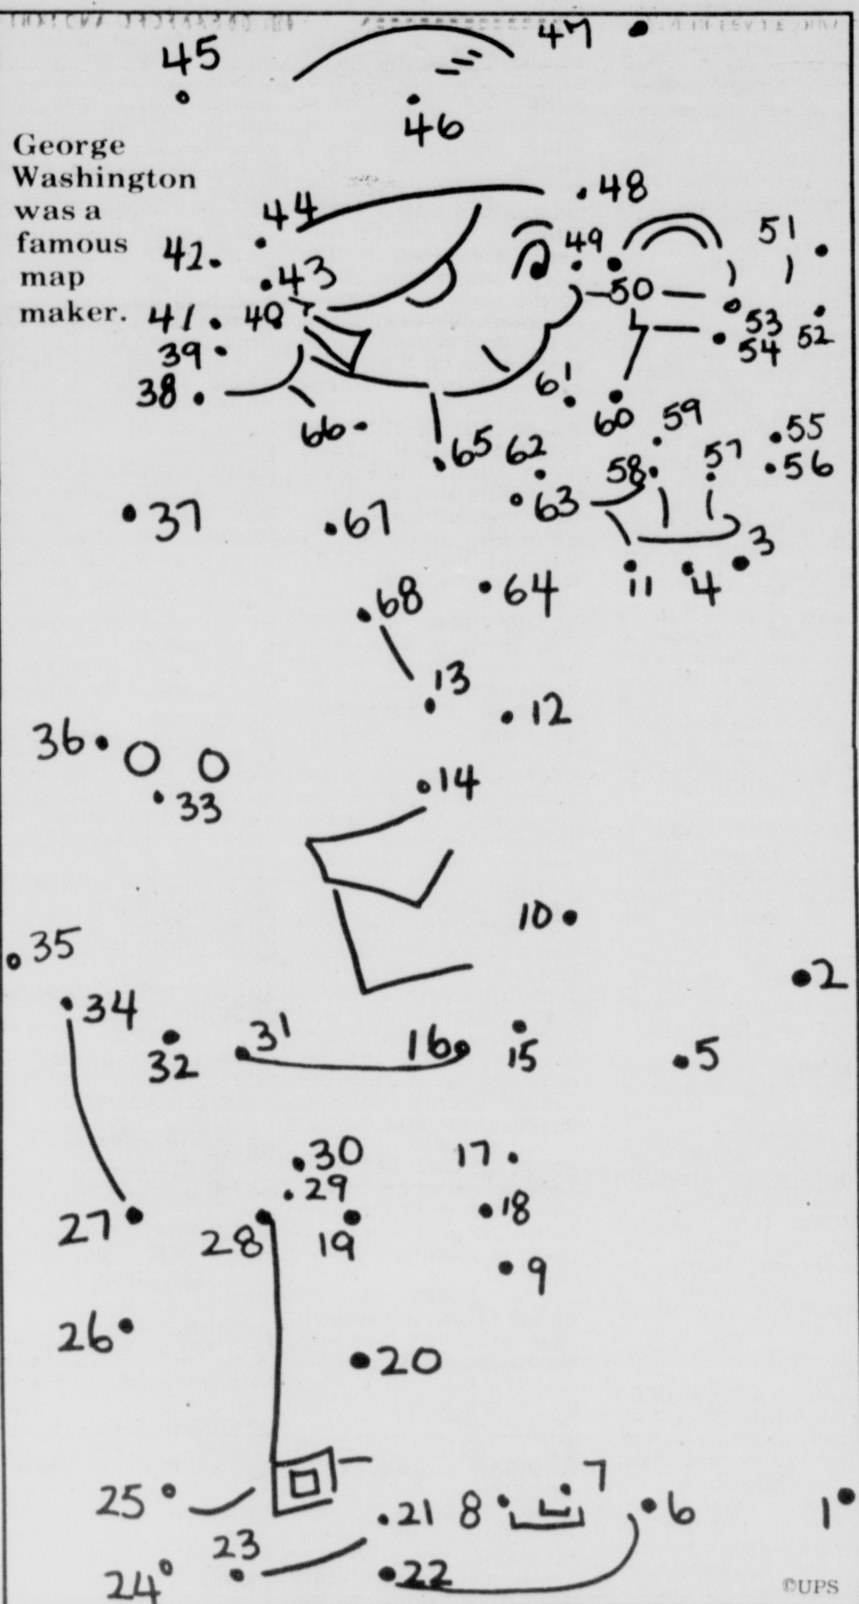 45
47
46
George
Washington
was a
famous
map
maker.
44
48
42
43
49
51
50
41
40
53
52
39
54
38
61
60
59
66
65
62
58
57
55
56
37
67
63
3
68
64
11
4
13
12
36
14
33
10
35
34
2
31
16
15
5
32
30
17
29
18
27
28
19
9
26
20
7
25
21
8
6
1
23
24
22
©UPS